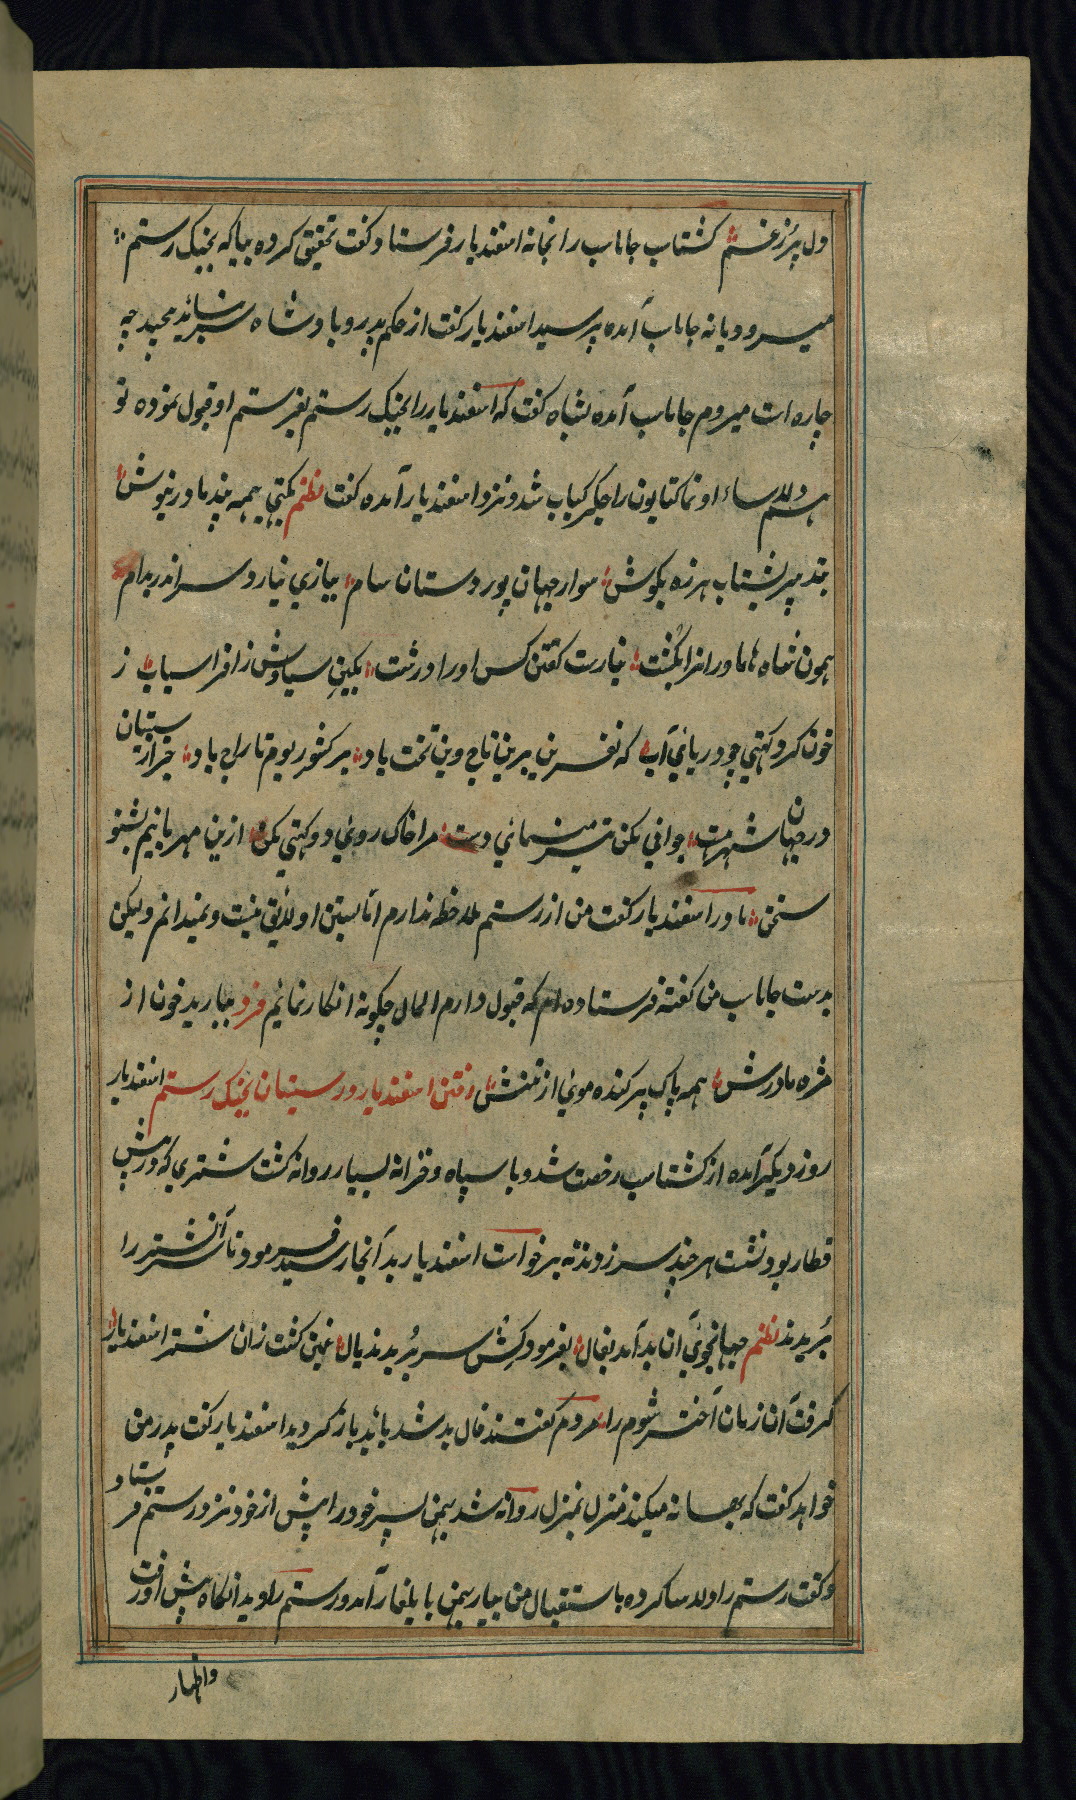 دل پر ز غم گشتاب جاماسب را بخانه اسفندیار فرستاد و گفت تحقیق کرده بیا که بجنگ رستم
میرود یا نه جاماسب آمده پرسید اسفندیار گفت از حکم پدر و پادشاه سر نشاید پیچید چه
چاره است میروم جاماسب آمده بشاه گفت که اسفندیار را بجنگ رستم بفرستم او قبول نموده تو
هم دلاسا او نما کتایون را جگر کباب شد و نزد اسفندیار آمده گفت نظم ز گیتی همه پند مادر نیوش
ببد تیز مشتاب و هرزه بکوش سوار جهان پور دستان سام ببازی نیارد سر اندر بدام
همون شاه هاماوران را بکشت نیارست گفتن کس او را درشت بکین سیاوش ز افراسیاب ز
خون کرد گیتی چو دریای آب که نفرین برین تاج و این تخت باد بر کشور بوم تاراج باد جز از سیستان
در جهان شهرهست جوانی مکن تیز منمای دست مرا خاکروی دو گیتی مکن ازین مهربانیم بشنو
سخن مادر اسفندیار گفت من از رستم ملاحظه ندارم اما بستن او لایق نیست و نمیدانم ولیکن
بدست جاماسب من گفته فرستاده‌ام که قبول دارم الحال چگونه انکار نمایم فرد ببارید خون از
مژه مادرش همه پاک بر کنده موی از تنش رفتن اسفندیار در سیستان بجنگ رستم اسفندیار
روز دیگر آمده از گشتاسب رخصت شد و با سپاه و خزانه بسیار روانه گشت شتری که در پیش
قطار بود نشست هر چند سر زدند نه برخواست اسفندیار بدآنجا رسید فرمود تا آن شتر را
بریدند نظم جهانجوی آن بد آمد بفال بفرمود کش سر بریدند یال غمین گشت زان شتر اسفندیار
گرفت آن زمان اختر شوم را مردم گفتند فال بد شد باید باز گردید اسفندیار گفت پدر من
خواهد گفت که بهانه میکند منزل بمنزل روانه شد بهمن پسر خود را پیش از خود نزد رستم فرستاد
و گفت رستم را دلاسا کرده باستقبال من بیار بهمن با یلغار آمد و رستم را دید آنگاه پیش او رفت
واظهار